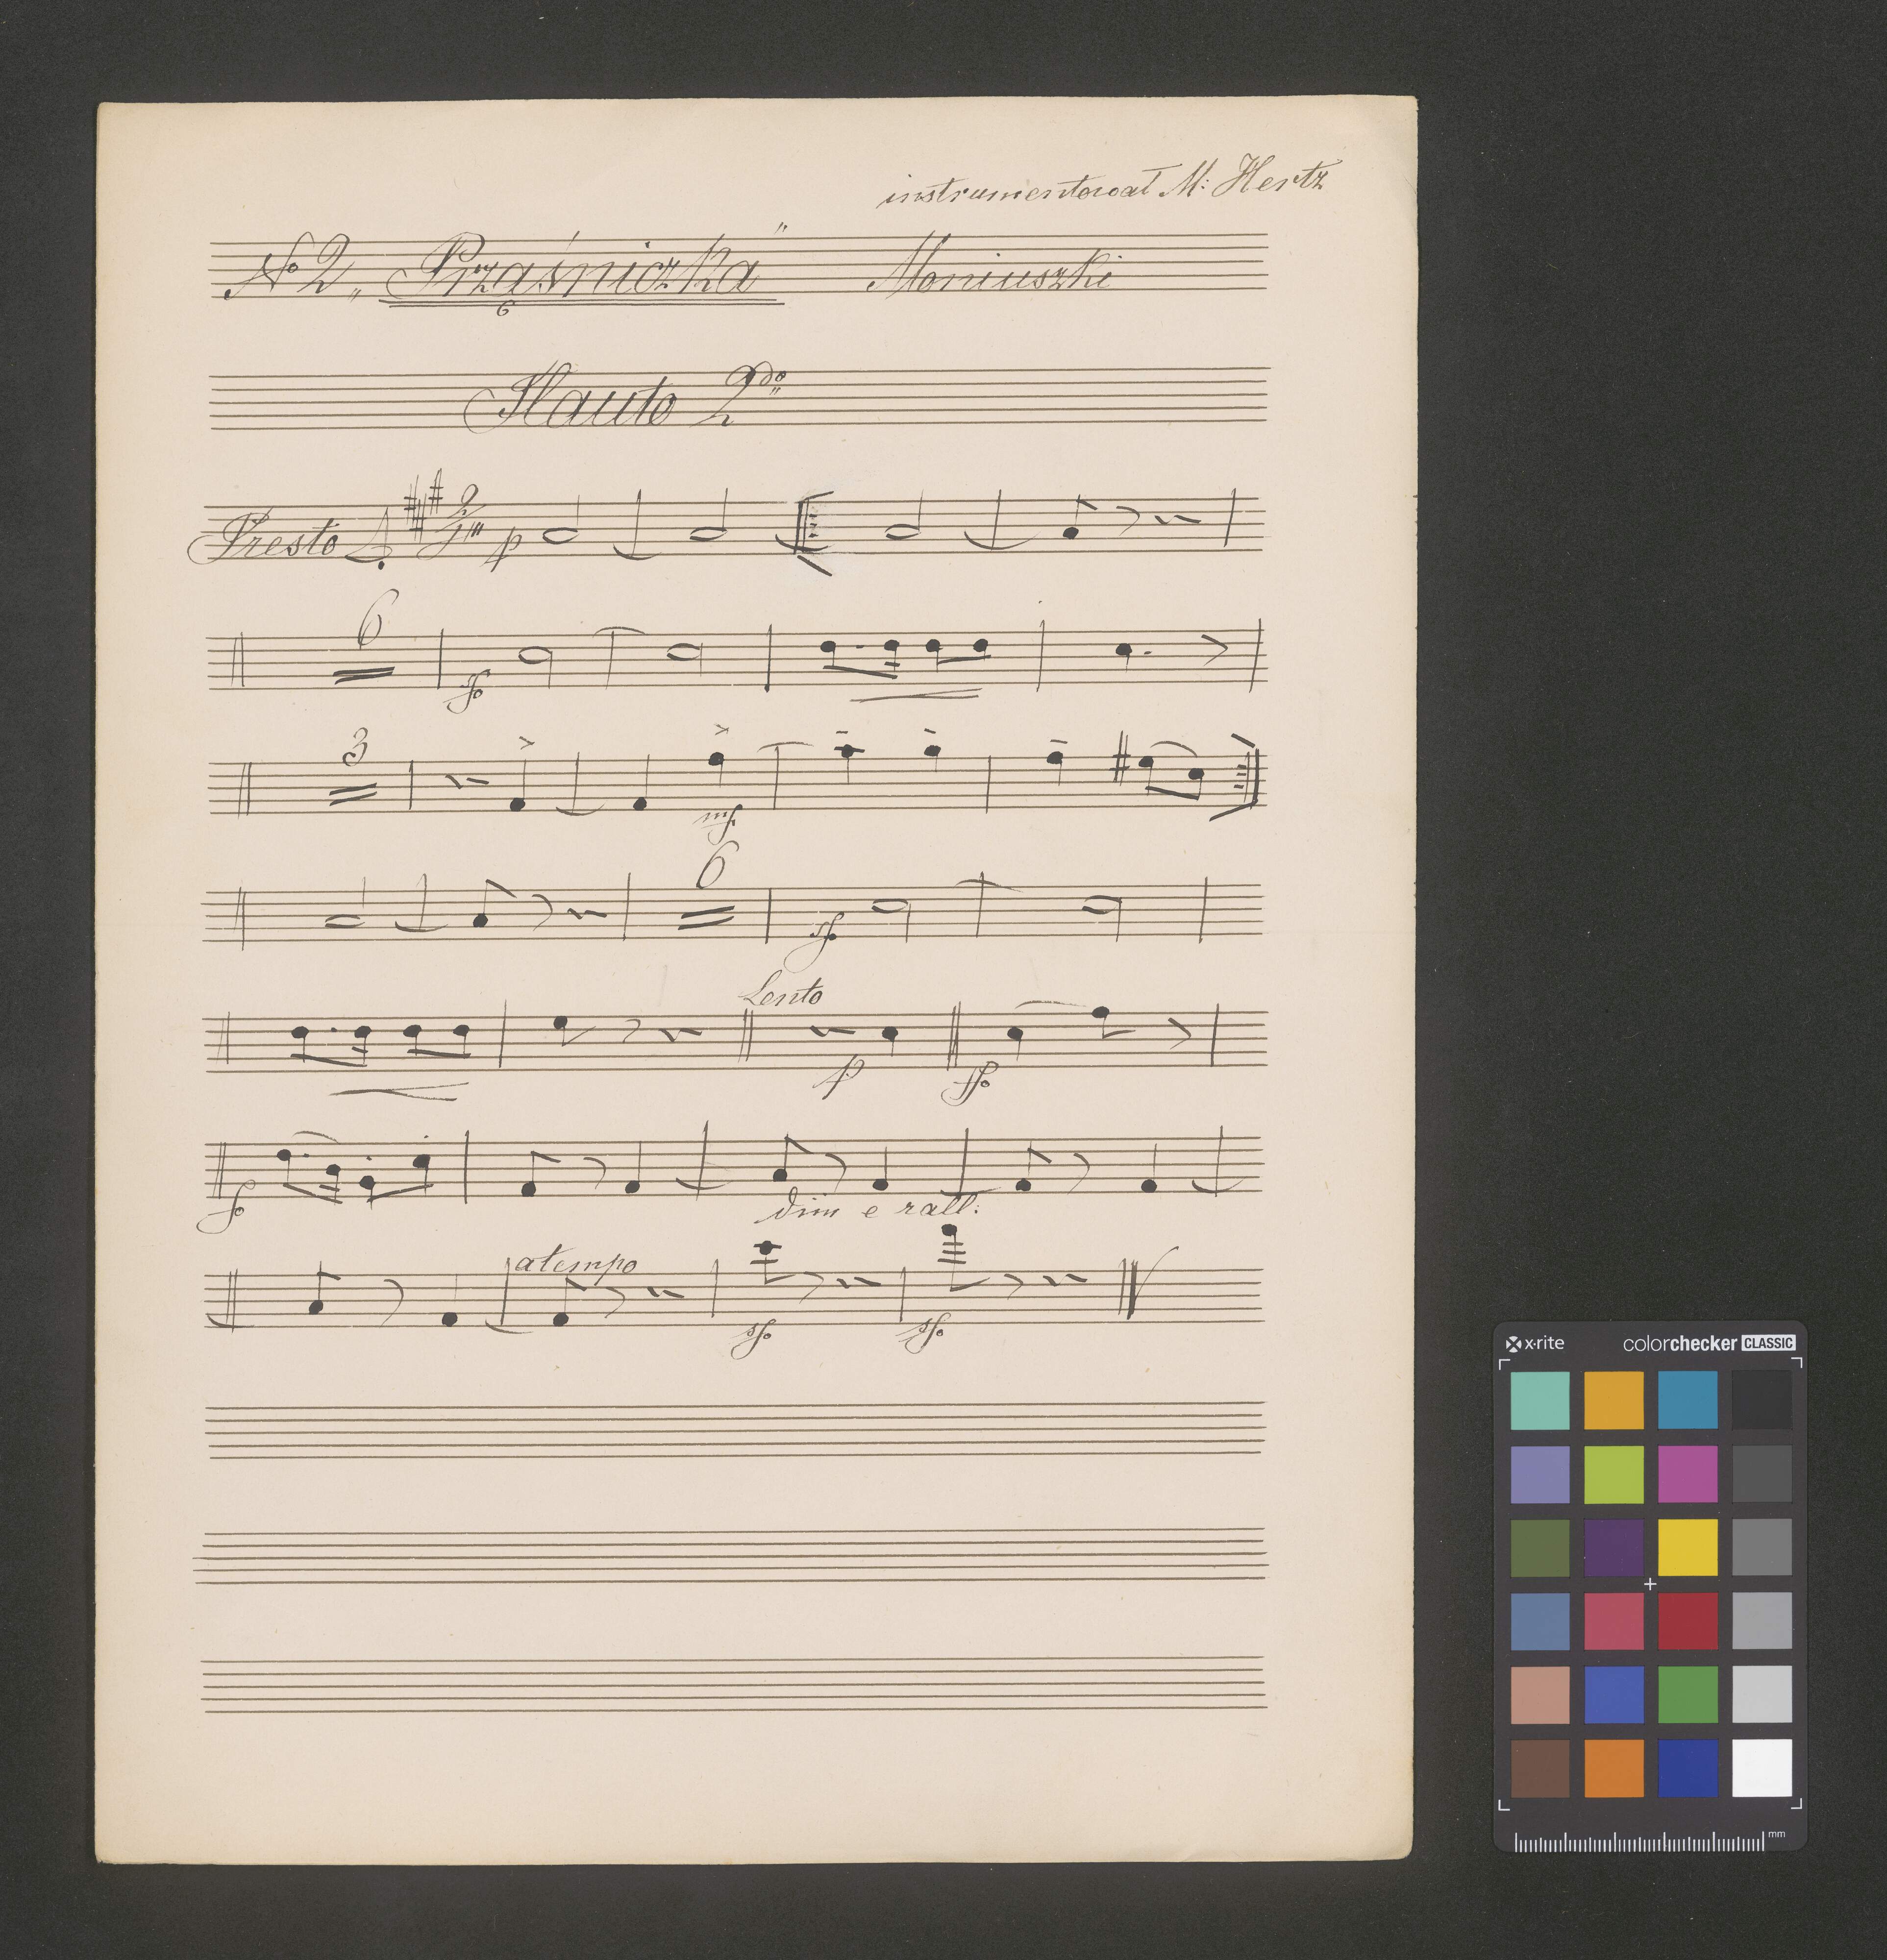 instrumentował M: Hertz
No 2 „Prząśniczka" Moniuszki
6
Flauto 2do
Presto 2/4 p
6
fo
3
mf
6
sfo
Lento
p ffo
fo
dim e rall:
a tempo
sfo sfo
x-rite colorchecker CLASSIC
mm